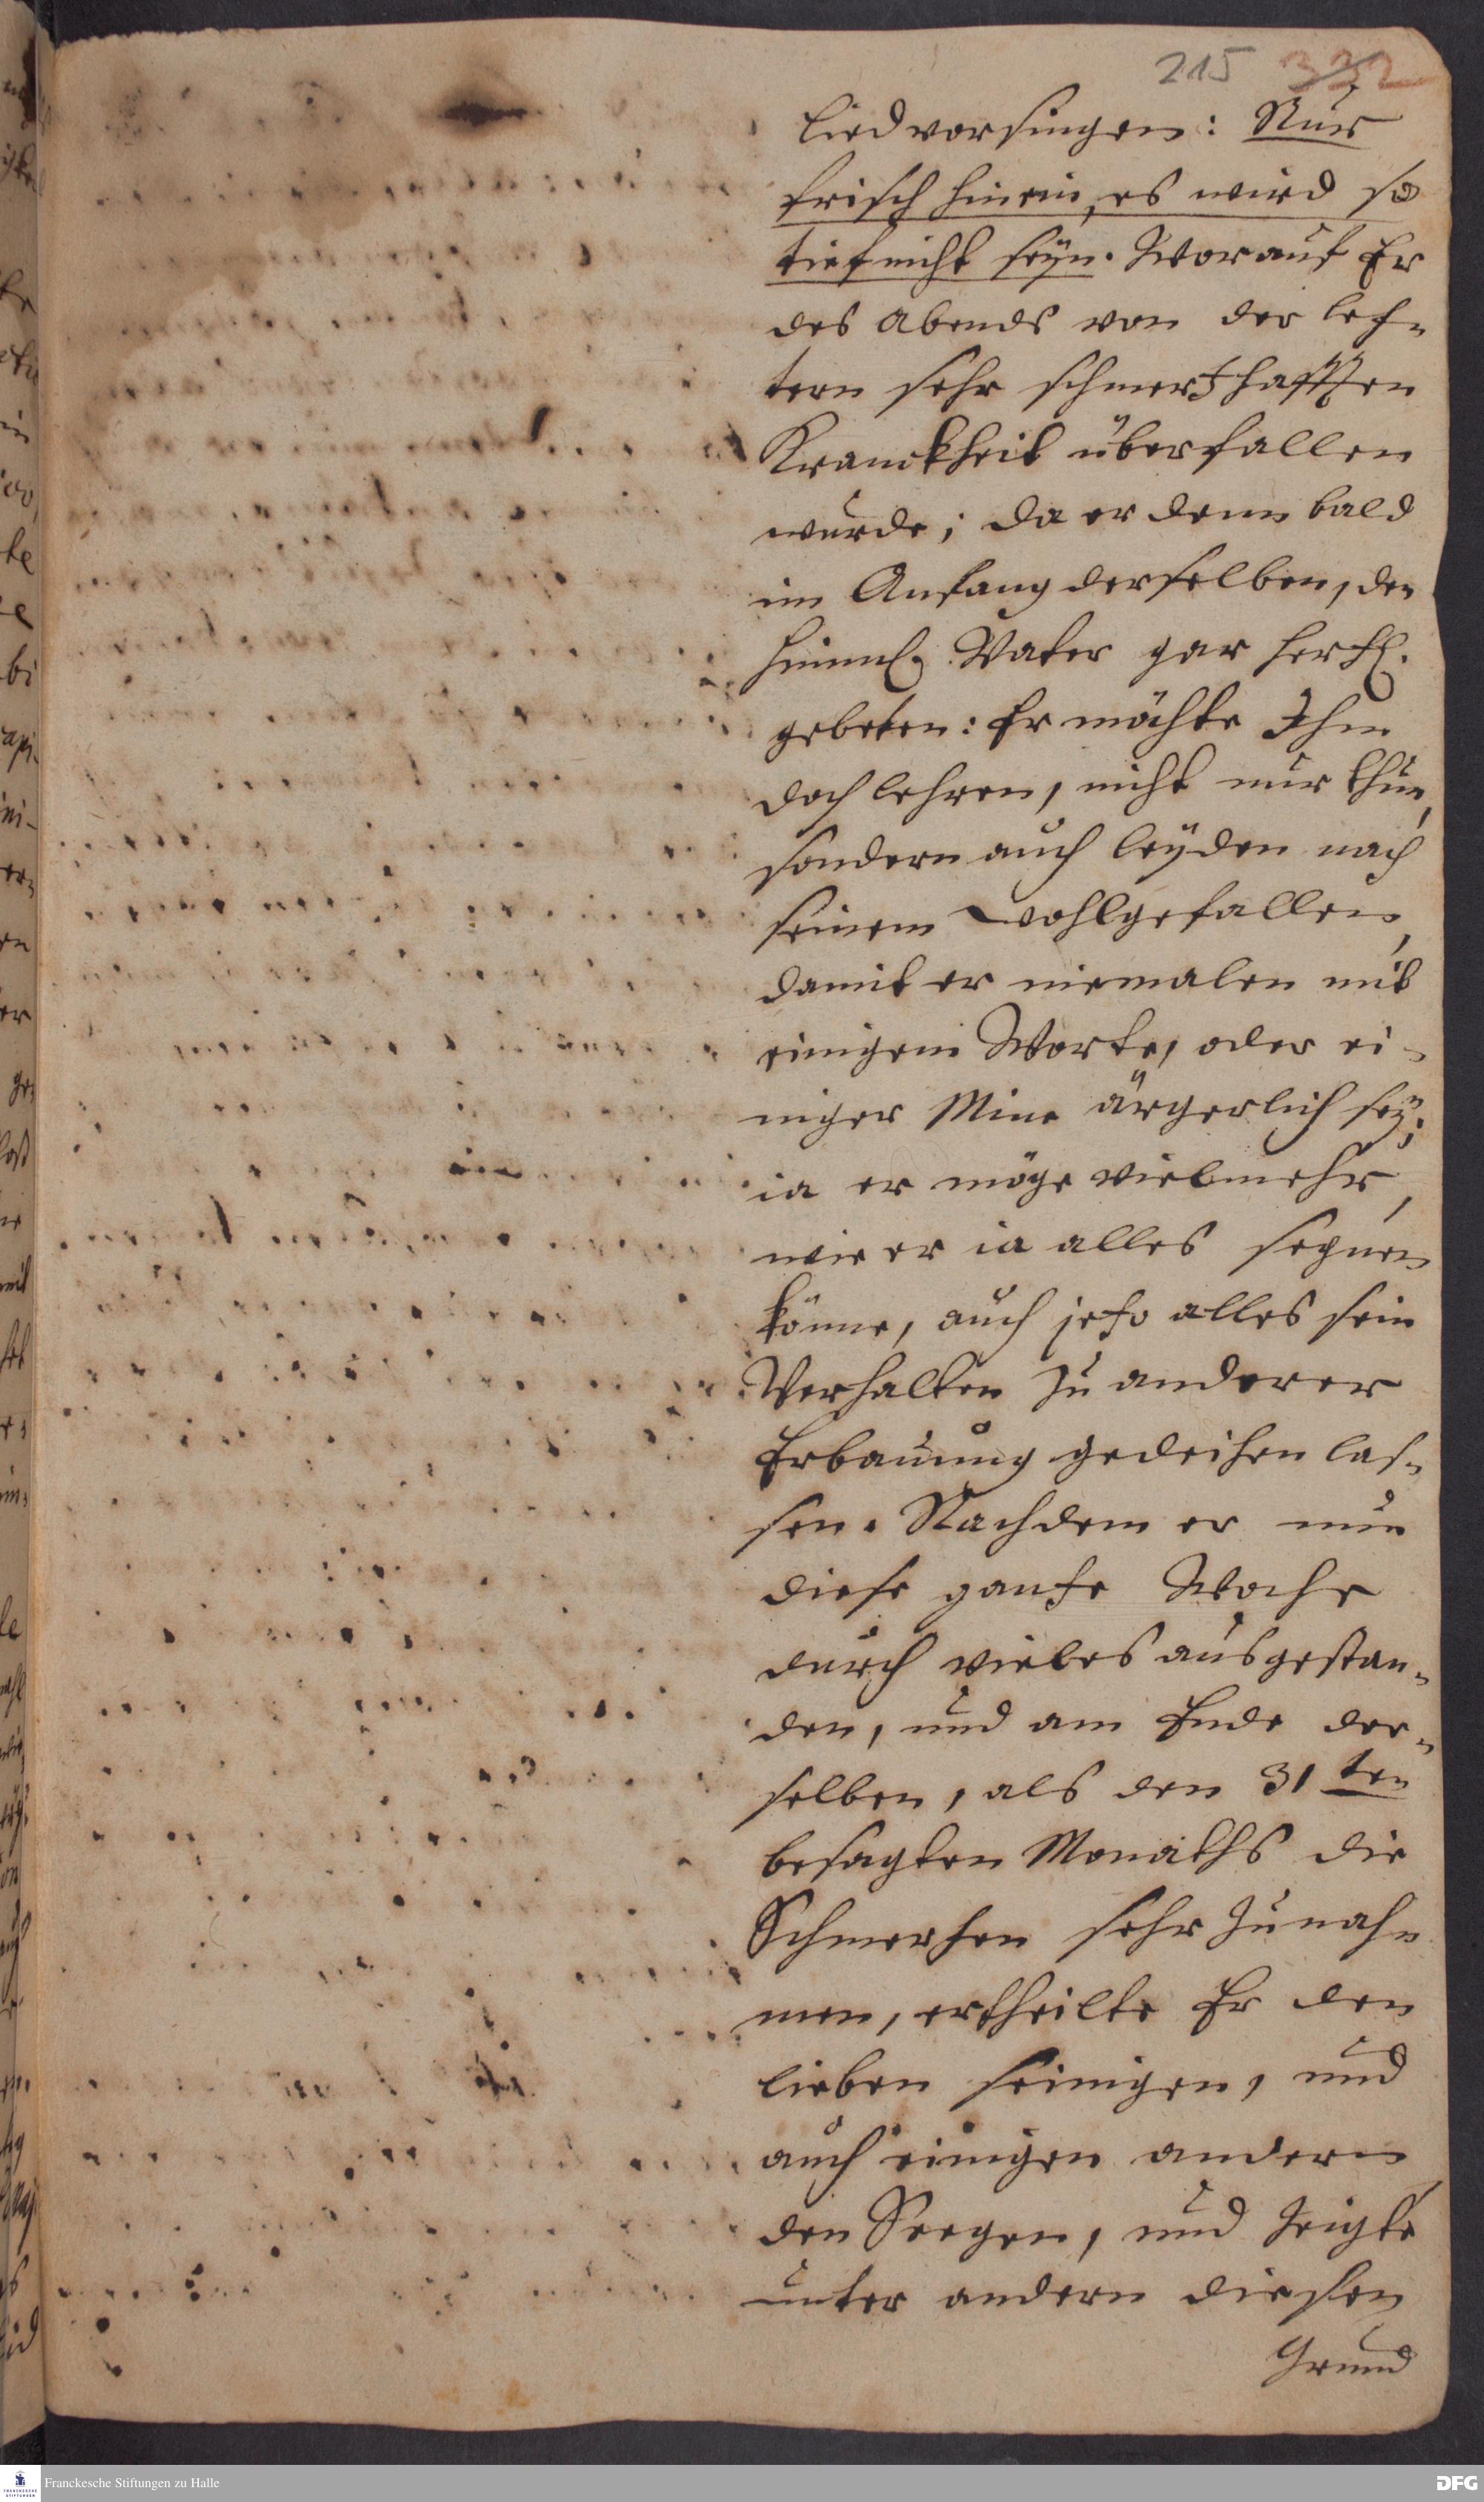 215 332
Lied vorsingen: Nur
frisch hinein, es wird so
tief nicht seÿn. Worauf Er
des Abends von der letz¬
tern sehr schmertzhafften
Kranckheit überfallen
wurde; da er denn bald
im Anfang derselben, den
himml. Vater gar hertzl.
gebeten: Er möchte Ihn
doch lehren, nicht nur thun,
sondern auch leÿden nach
seinem Wohlgefallen,
damit er niemalen mit
einigem Worte, oder ei¬
niger Mine ärgerlich seÿ;
ia er möge vielmehr,
wie er ia alles segnen
könne, auch jetzo alles sein
Verhalten zu anderer
Erbauung gedeihen las¬
sen. Nachdem er nun
diese gantze Woche
durch vieles ausgestan¬
den, und am Ende der¬
selben, als den 31ten
besagten Monaths die
Schmertzen sehr zunah¬
men, ertheilte Er den
lieben seinigen, und
auch einigen andern
den Seegen, und zeigte
unter andern diesen
Grund
Franckesche Stiftungen zu Halle
DFG